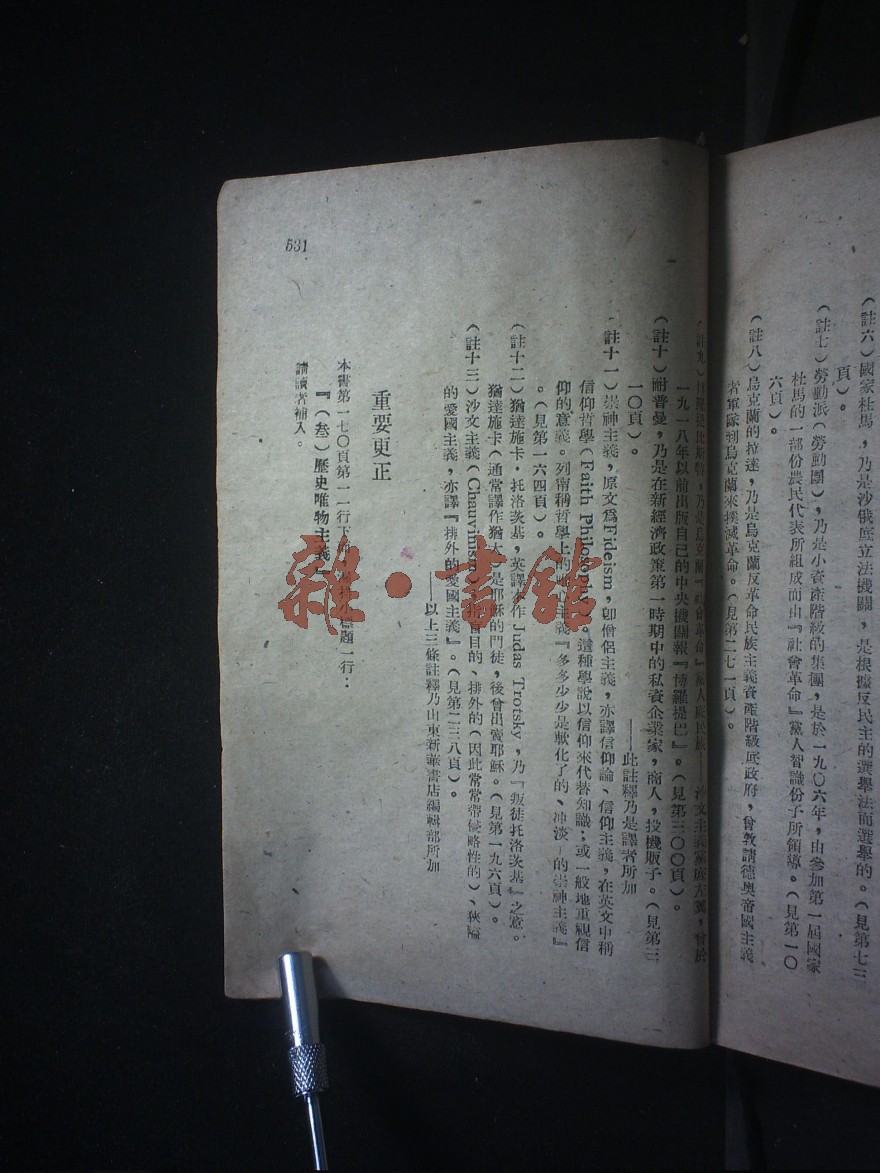 （註六）國家杜馬，乃是沙俄底立法機關，是根據反民主的選舉法而選舉的。（見第七三
頁）。
（註七）勞動派（勞動團），乃是小資產階級的集團，是於一九〇六年，由參加第一屆國家
杜馬的一部份農民代表所組成而由『社會革命』黨人智識份子所領導。（見第一〇
六頁）。
（註八）烏克蘭的拉達，乃是烏克蘭反革命民族主義資產階級底政府，曾敦請德奧帝國主義
者軍隊到烏克蘭來撲滅革命。（見第二七一頁）。
（註九）乃是烏克蘭『社會革命』黨人底民族——沙文主義黨底左翼，曾於
一九一八年以前出版自己的中央機關報『博羅提巴』。（見第三〇〇頁）。
（註十）耐普曼，乃是在新經濟政策第一時期中的私資企業家，商人，投機販子。（見第三
一〇頁）。
——此註釋乃是譯者所加
（註十一）崇神主義，原文爲Fideism，卽僧侶主義，亦譯信仰論、信仰主義，在英文中稱
信仰哲學（Faith Philosophy）。這種學說以信仰來代替知識；或一般地重視信
仰的意義。列甯稱哲學上的唯心主義『多多少少是軟化了的、冲淡了的崇神主義』
。（見第一六四頁）。
（註十二）猶達施卡·托洛茨基，英譯本作 Judas Trotsky，乃『叛徒托洛茨基』之意。
猶達施卡（通常譯作猶大）是耶穌的門徒，後曾出賣耶穌。（見第一九六頁）。
（註十三）沙文主義（Chauvinism）指盲目的、排外的（因此常常帶侵略性的）、狹隘
的愛國主義，亦譯『排外的愛國主義』。（見第二三八頁）。
——以上三條註釋乃山東新華書店編輯部所加
重要更正
本書第一七〇頁第一一行下小標題一行：
『（叁）歷史唯物主義』
請讀者補入。
531
雜·書館